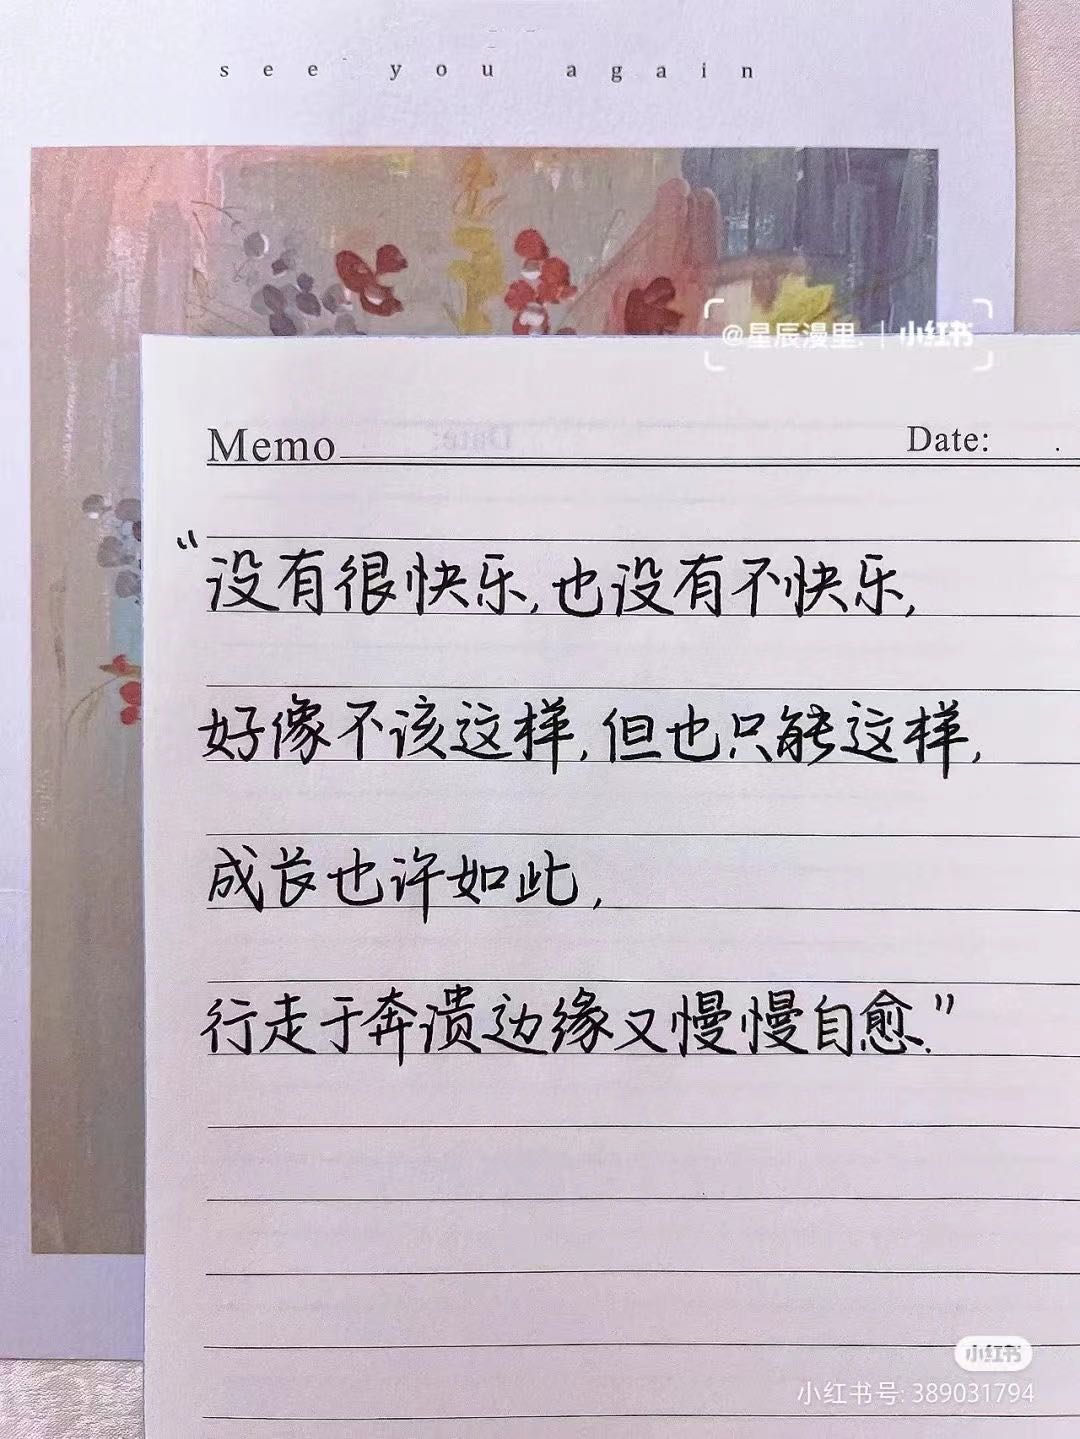 see you again
@星辰漫里. | 小红书
Memo
Date:
“没有很快乐,也没有不快乐,
好像不该这样,但也只能这样,
成长也许如此,
行走于奔溃边缘又慢慢自愈.”
小红书
小红书号: 389031794